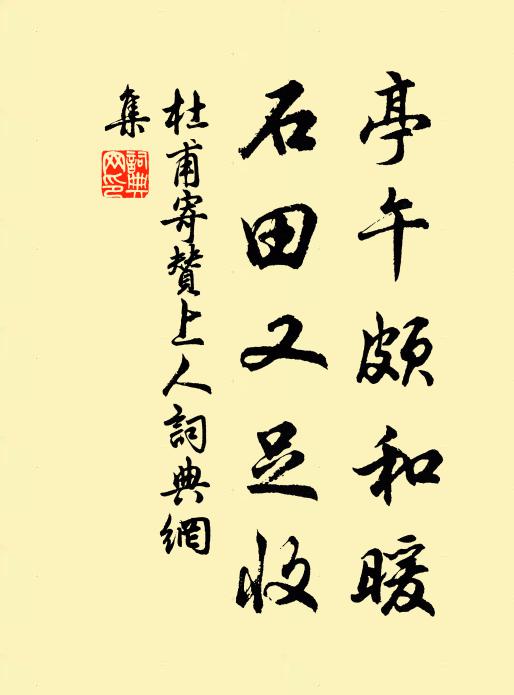 亭午頗和暖
石田又足收
杜甫寄贊上人詞典網
集
詞典網印